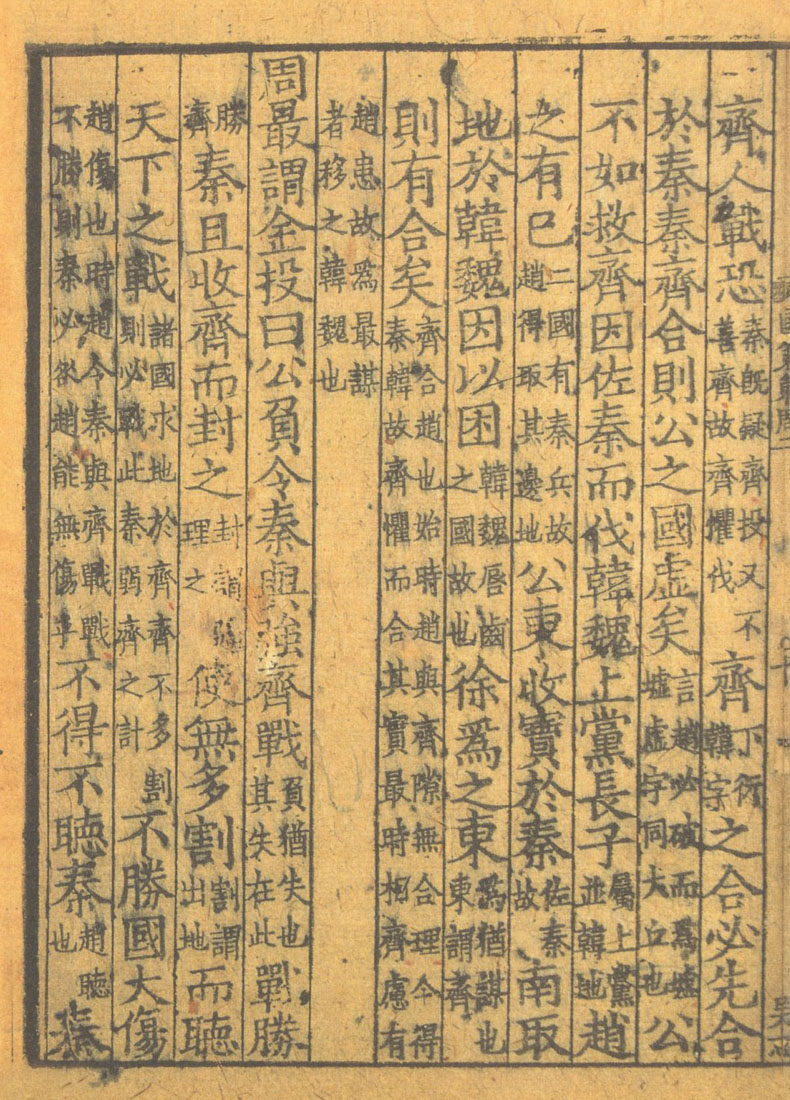 齊人戰恐秦既疑齊投又不善齊故齊懼伐齊下衍韓字之合必先合
於秦秦齊合則公之國虛矣言趙必破而爲墟墟虛字同大丘也公
不如救齊因佐秦而伐韓魏上黨長子屬上黨並韓地趙
之有已二國有秦兵故趙得取其邊地公東收寶於秦佐秦故南取
地於韓魏因以困韓魏唇齒之國故也徐爲之東爲猶謀也東謂齊
則有合矣齊合趙也始時趙與齊隙無合理今得秦韓故齊懼而合其實最時相齊慮有
趙患故爲最謀者移之韓魏也
周最謂金投曰公負令秦與強齊戰負猶失也其失在此戰勝
勝齊秦且收齊而封之封理之使無多割割謂出地而聽
天下之戰諸國求地於齊齊不多割則必戰此秦弱齊之計不勝國大傷
趙傷也時趙令秦與齊戰戰不勝則秦必欲趙能無傷乎不得不聽秦趙聽也秦